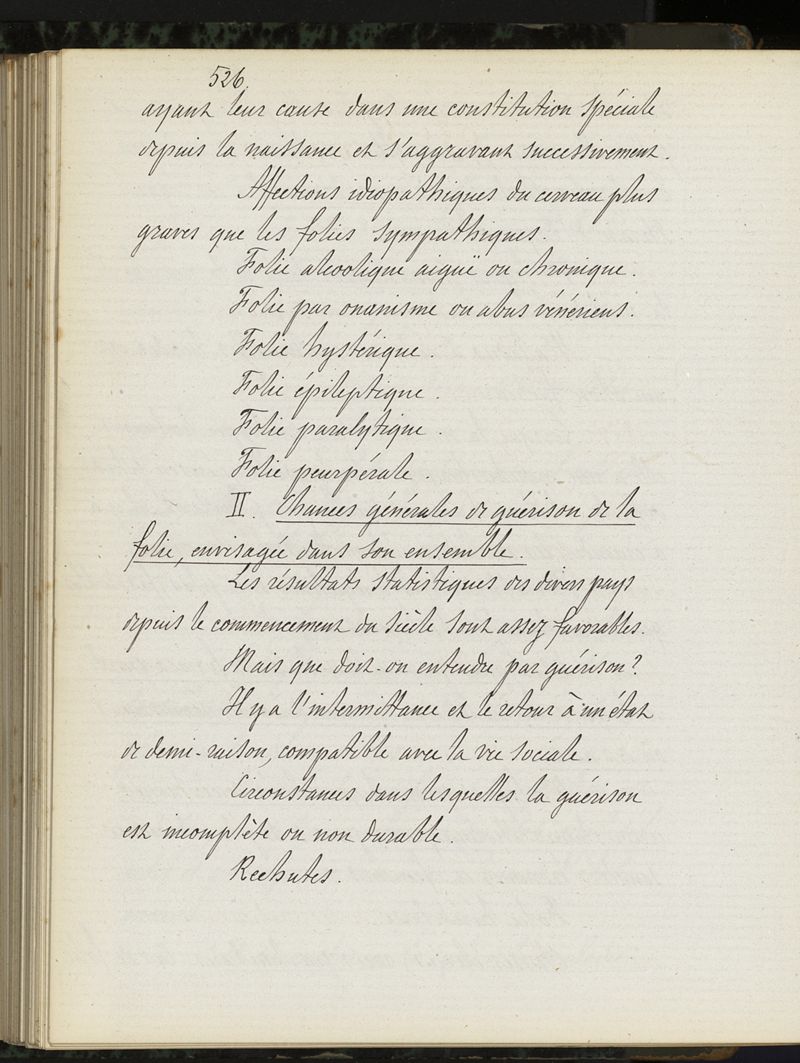 526
ayant leur cause dans une constitution spéciale
depuis la naissance et s'aggravant successivement.
Affections idiopathiques du cerveau plus
graves que les folies sympathiques.
Folie alcoolique aiguë ou chronique.
Folie par onanisme ou abus vénériens.
Folie hystérique.
Folie épileptique.
Folie paralytique.
Folie peurpérale.
II. Chances générales de guérison de la
folie, envisagée dans son ensemble.
Les résultats statistiques des divers pays
depuis le commencement du siècle sont assez favorables.
Mais que doit-on entendre par guérison?
Il y a l'intermittance et le retour à un état
de demi-raison, compatible avec la vie sociale.
Circonstances dans lesquelles la guérison
est incomplète ou non durable.
Rechutes.